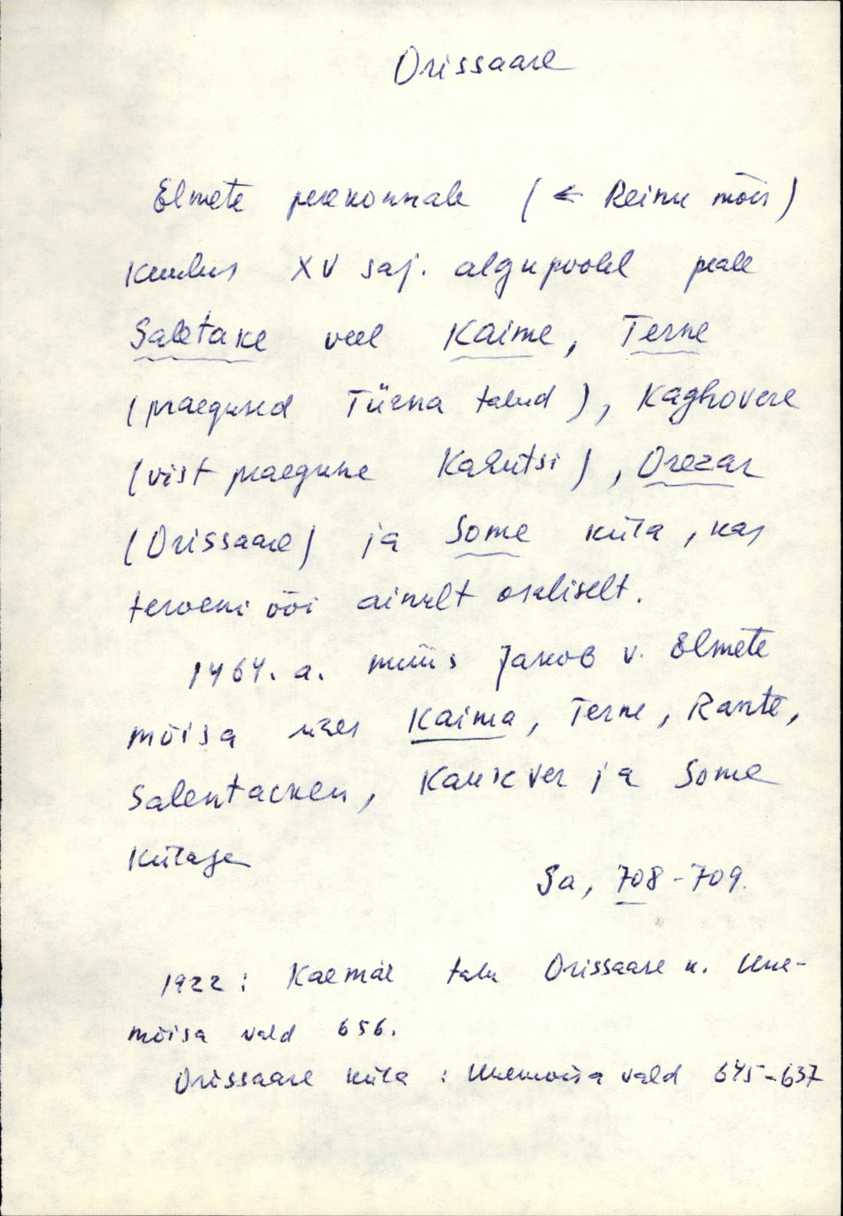 Orissaare
Elmete perekonnale (← Reinu mõis)
kuulus XV saj. algupoolel peale
Saletake veel Kaime, Terne
(praegused Türna talud), Kaghovere
(vist praegune Kahutsi), Orezar
(Orissaare) ja Some küla, kas
terveni või ainult osaliselt.
1464. a. müüs Jakob v. Elmete
mõisa ühes Kaima, Terne, Rante,
Salentacken, Kaukver ja Some
külaga
Sa, 708-709.
1922: Kaemäe talu Orissaare k. Uue-
mõisa vald 656.
Orissaare küla: Uuemõisa vald 645-637